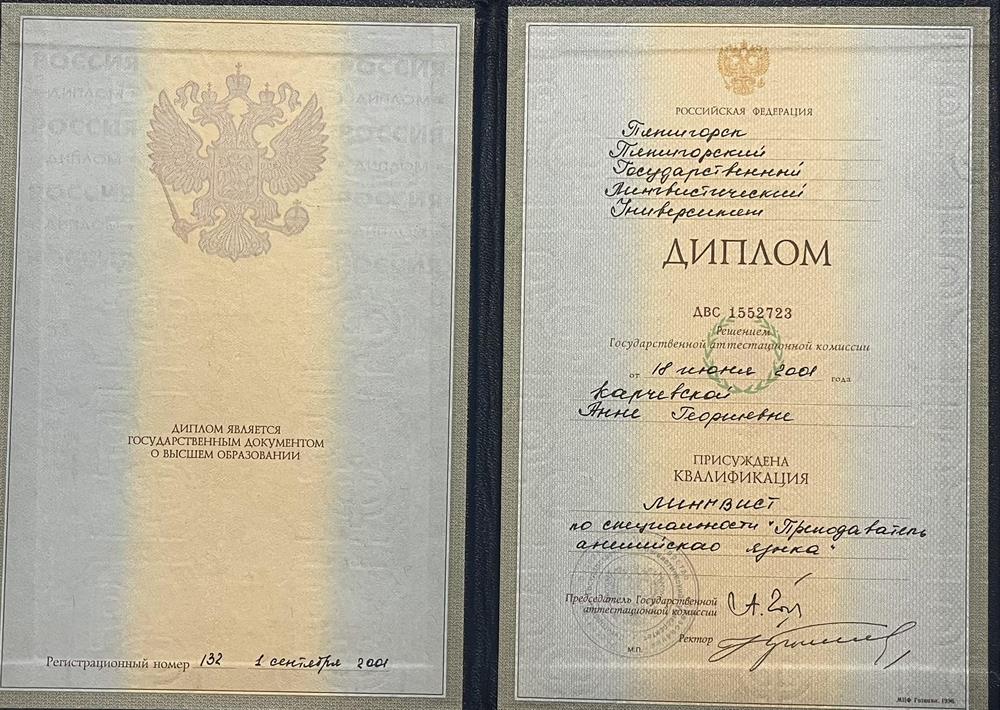 ДИПЛОМ ЯВЛЯЕТСЯ
ГОСУДАРСТВЕННЫМ ДОКУМЕНТОМ
О ВЫСШЕМ ОБРАЗОВАНИИ
Регистрационный номер 132 1 сентября 2001
РОССИЙСКАЯ ФЕДЕРАЦИЯ
Пятигорск
Пятигорский
Государственный
Лингвистический
Университет
ДИПЛОМ
ДВС 1552723
Решением
Государственной аттестационной комиссии
от 18 июня 2001 года
Карчевской
Анне Георгиевне
ПРИСУЖДЕНА
КВАЛИФИКАЦИЯ
Лингвист
по специальности "Преподаватель
английского языка"
Председатель Государственной
аттестационной комиссии
Ректор
М.П.
МПФ Гознака. 1996.